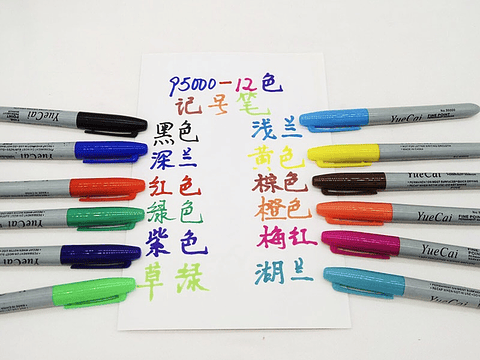 95000-12色
记号笔
黑色 浅兰
深兰 黄色
红色 棕色
绿色 橙色
紫色 梅红
草绿 湖兰
YueCai
YueCai
YueCai
YueCai
YueCai
YueCai
YueCai
YueCai
YueCai
YueCai
YueCai
YueCai